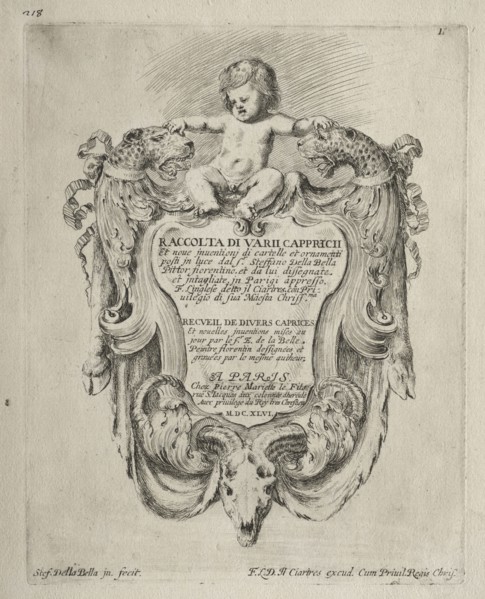 218
1.
RACCOLTA DI VARII CAPPRICII
Et noue inuentionj di cartelle et ornamenti
posti in luce dal sr. Steffano Della Bella
Pittor fiorentino. et da lui dissegnate.
et intagliate, in Parigi appresso.
F. L'anglese detto il Ciartres, con Pri-
uilegio di sua Maesta Chriss.ma
RECVEIL DE DIVERS CAPRICES
Et nouelles inuentions mises au
jour par le sr. E. de la Belle.
Peintre florentin dessignées et
grauées par le mesme autheur,
A PARIS
Chez Pierre Mariette le Filz
rue S. Iacques aux colonnes d'hercule
Auec priuilege du Roy tres Chrestien
M.DC.XLVI.
Stef. Della Bella jn. fecit.
F.L.D. Il Ciartres excud. Cum Priuil. Regis Chris.